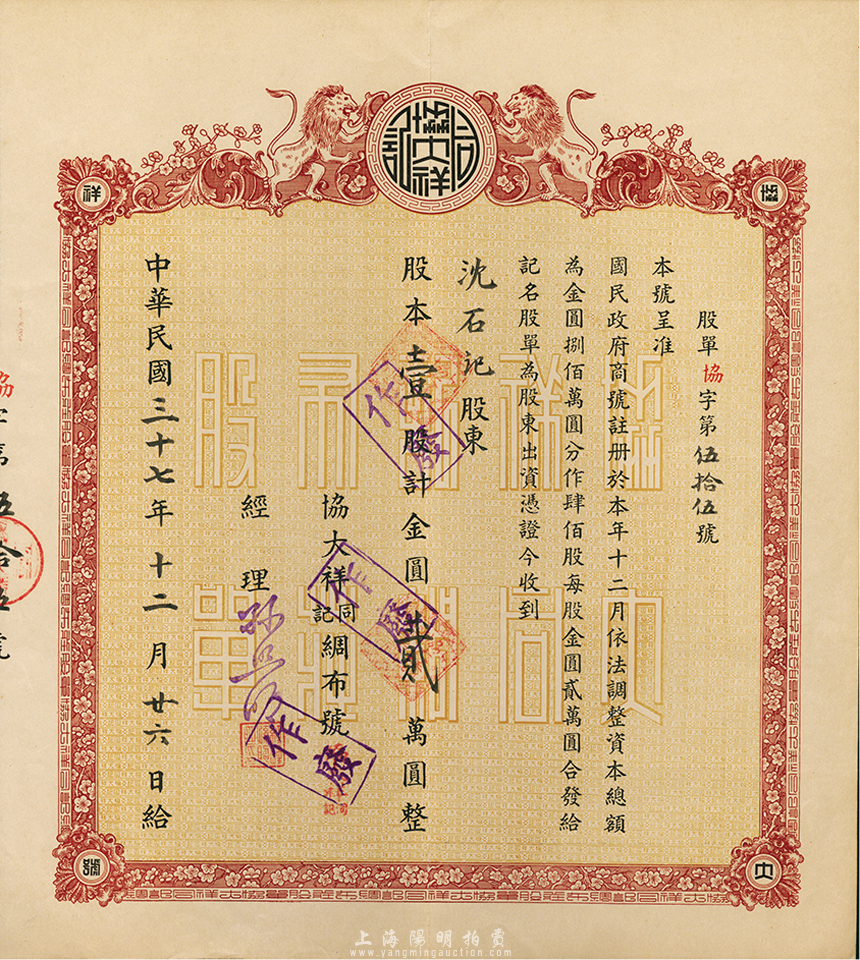 協大祥記同
協
祥
大
號
股單協字第伍拾伍號
本號呈准
國民政府商號註册於本年十二月依法調整資本總額
為金圓捌佰萬圓分作肆佰股每股金圓貳萬圓合發給
記名股單為股東出資憑證今收到
沈石記股東
股本壹股計金圓貳萬圓整
協大祥同記綢布號
經理
中華民國三十七年十二月廿六日給
作廢
作廢
作廢
協字第五拾五號
協大祥同記綢布莊股單
上海陽明拍賣
www.yangmingauction.com